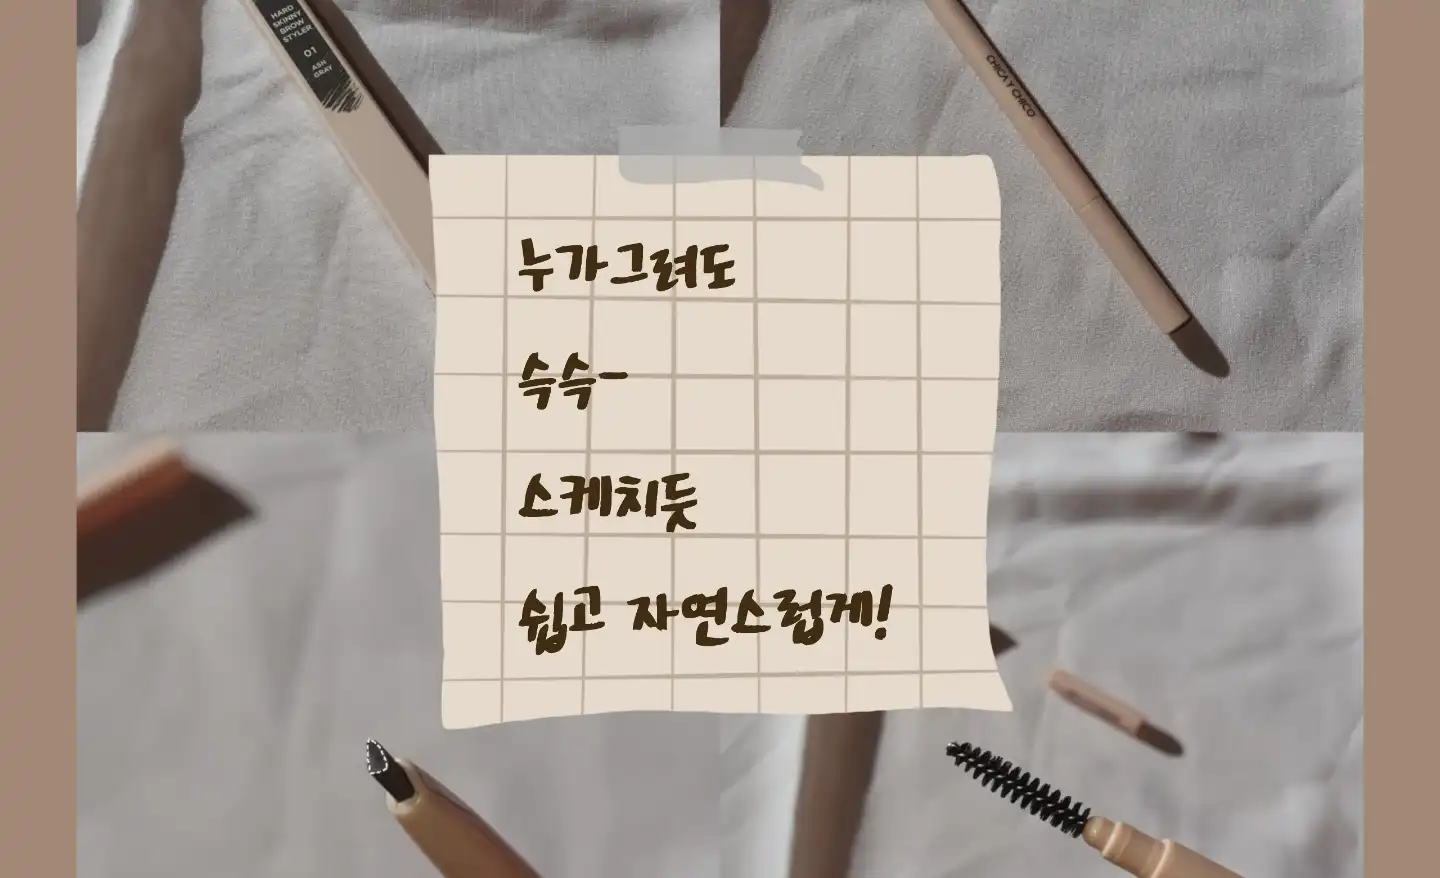 HARD
SKINNY
BROW
STYLER
01
ASH
GRAY
CHICA Y CHICO
누가그려도
슥슥-
스케치듯
쉽고 자연스럽게!